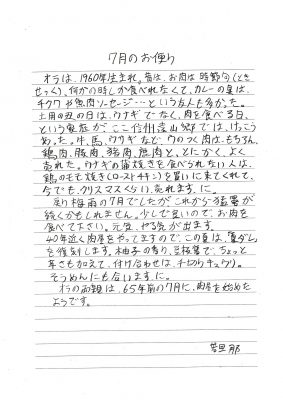 7月のお便り
オラは、1960年生まれ。昔は、お肉は時節句(とき
せっく)、何かの時しか食べれなくて、カレーの具は、
チクワや魚肉ソーセージ…という友人も多かった。
土用の丑の日は、ウナギでなく、肉を食べる日、
という風習が、ここ信州遠山郷では、けっこう
あった。牛、馬、ウサギなど、ウのつく肉はもちろん、
鶏肉、豚肉、猪肉、熊肉と、とにかく、よく
売れた。ウナギの蒲焼きを食べられない人は、
鶏のもも焼き(ローストチキン)を買いに来てくれて、
今でも、クリスマスくらい、売れます、に。
戻り梅雨の7月でしたが、これから猛暑が
続くかもしれません。少しで良いので、お肉を
食べて下さい。元気、やる気が出ます。
40年近く肉屋をやってますので、この夏は、夏ダレ
を復刻します。柚子の香り、豆板醤で、ちょっと
辛さも加えて、付け合わせは、千切りキュウリ。
そうめんにも合います、に。
オラの両親は、65年前の7月に、肉屋を始めた
ようです。